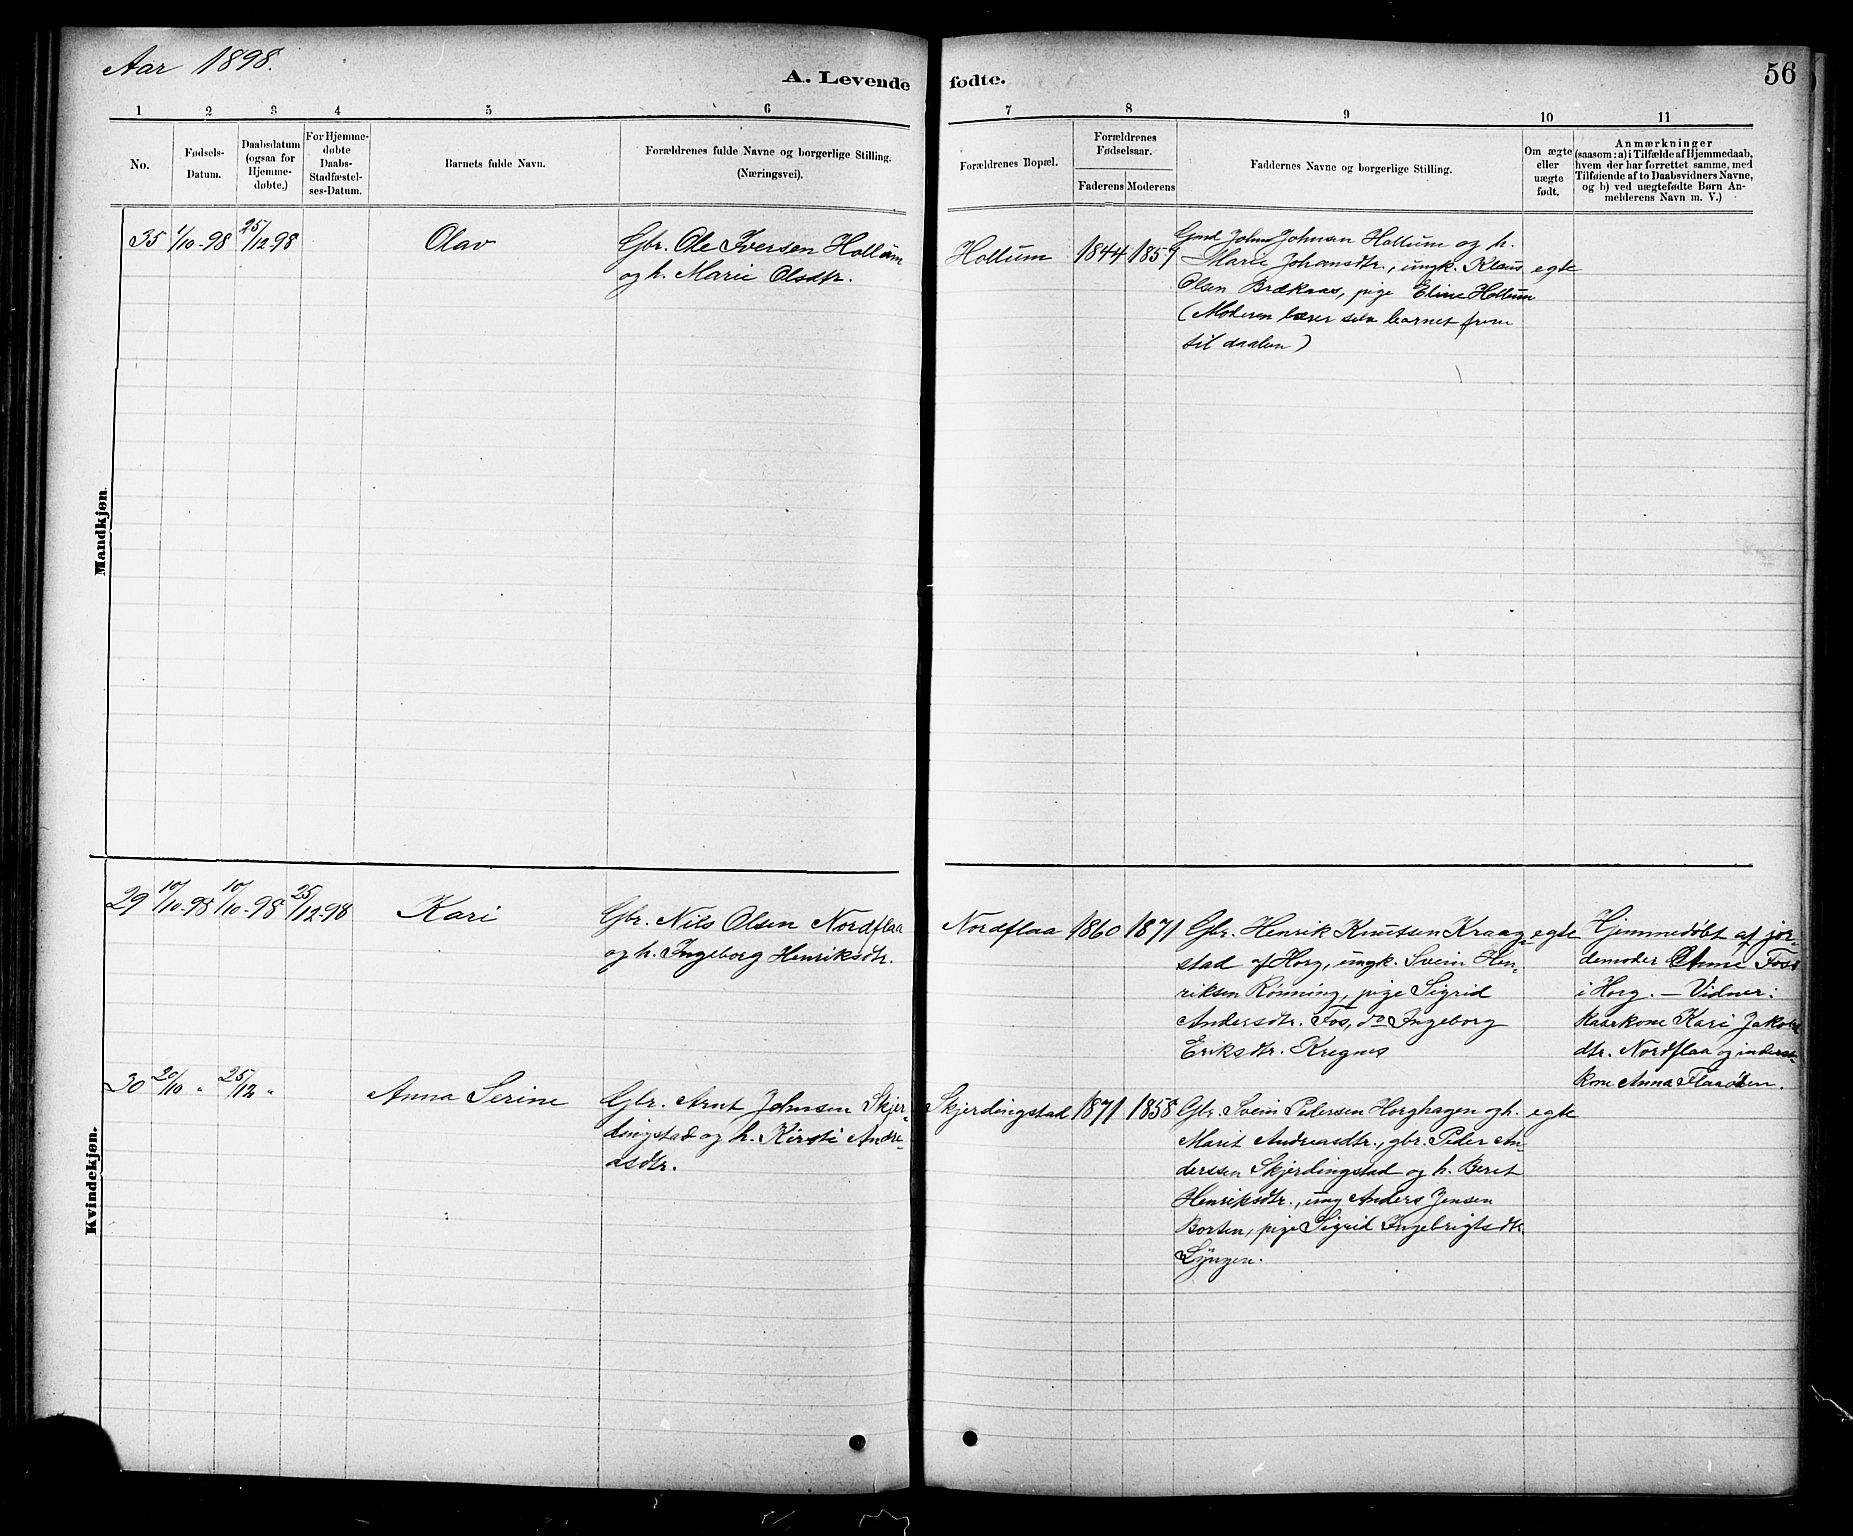 Aar 1898.
A. Levende fødte.
56
1 2 3 4 5 6 7 8 9 10 11
No.
Fødsels-
Datum.
Daabsdatum
(ogsaa for
Hjemme-
døbte.)
For Hjemme-
døbte
Daabs-
Stadfæstel-
ses-Datum.
Barnets fulde Navn.
Forældrenes fulde Navne og borgerlige Stilling.
(Næringsvei).
Forældrenes Bopæl.
Forældrenes
Fødselsaar.
Faderens Moderens
Faddernes Navne og borgerlige Stilling.
Om ægte
eller
uægte
født.
Anmærkninger
(saasom: a) i Tilfælde af Hjemmedaab,
hvem der har forrettet samme, med
Tilføiende af to Daabsvidners Navne,
og b) ved uægtefødte Børn An-
melderens Navn m. V.)
Mandkjøn.
35 1/10-98 25/12-98
Olav
Gbr. Ole Iversen Hollum
og h. Marie Olsdtr.
Hollum 1844 1857
Gmd John Johnsen Hollum og h.
Marie Johansdtr., ungk. Klaus
Olsen Brækaas, pige Eline Hollum
(Moderen bærer selv barnet frem
til daaben)
egte
Kvindekjøn.
29 10/10-98 10/10-98 25/12-98
Kari
Gbr. Nils Olsen Nordflaa
og h. Ingeborg Henriksdtr.
Nordflaa 1860 1871
Gbr. Henrik Knutsen Kraag-
stad af Horg, ungk. Svein Hen-
riksen Rønning, pige Sigrid
Andersdtr. Fos, do Ingeborg
Eriksdtr. Kregnes
egte
Hjemmedøbt af jor-
demoder Anne Foss
i Horg. — Vidner:
Kaarkone Kari Jakobs
dtr. Nordflaa og inderst-
kone Anna Flaaøien.
30 20/10 " 25/12 "
Anna Serine
Gbr. Arnt Johnsen Skjer-
dingstad og h. Kirsti Andre-
asdtr.
Skjerdingstad 1871 1858
Gbr. Svein Pedersen Horghagen og h.
Marit Andreasdtr., gbr. Peder An-
derssen Skjerdingstad og h. Beret
Henriksdtr., ung Anders Jensen
Borten, pige Sigrid Ingebrigtsdtr.
Lyngen.
egte